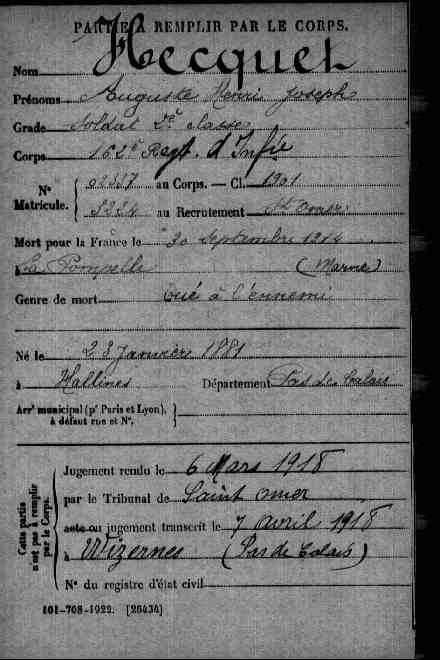 PARTIE À REMPLIR PAR LE CORPS.
Nom Hecquet
Prénoms Auguste Henri Joseph
Grade Soldat 2e classe
Corps 162e Regt. d'Infie
Nº Matricule. 02337 au Corps. — Cl. 1901
5224 au Recrutement St Omer
Mort pour la France le 30 Septembre 1914
à La Pompelle (Marne)
Genre de mort Tué à l'ennemi
Né le 23 Janvier 1881
à Hallines Département Pas de Calais
Arrt municipal (pr Paris et Lyon),
à défaut rue et Nº.
Cette partie
n'est pas à remplir
par le Corps.
Jugement rendu le 6 Mars 1918
par le Tribunal de Saint Omer
acte ou jugement transcrit le 7 avril 1918
à Wizernes (Pas de Calais)
Nº du registre d'état civil
101-708-1922. [26434]